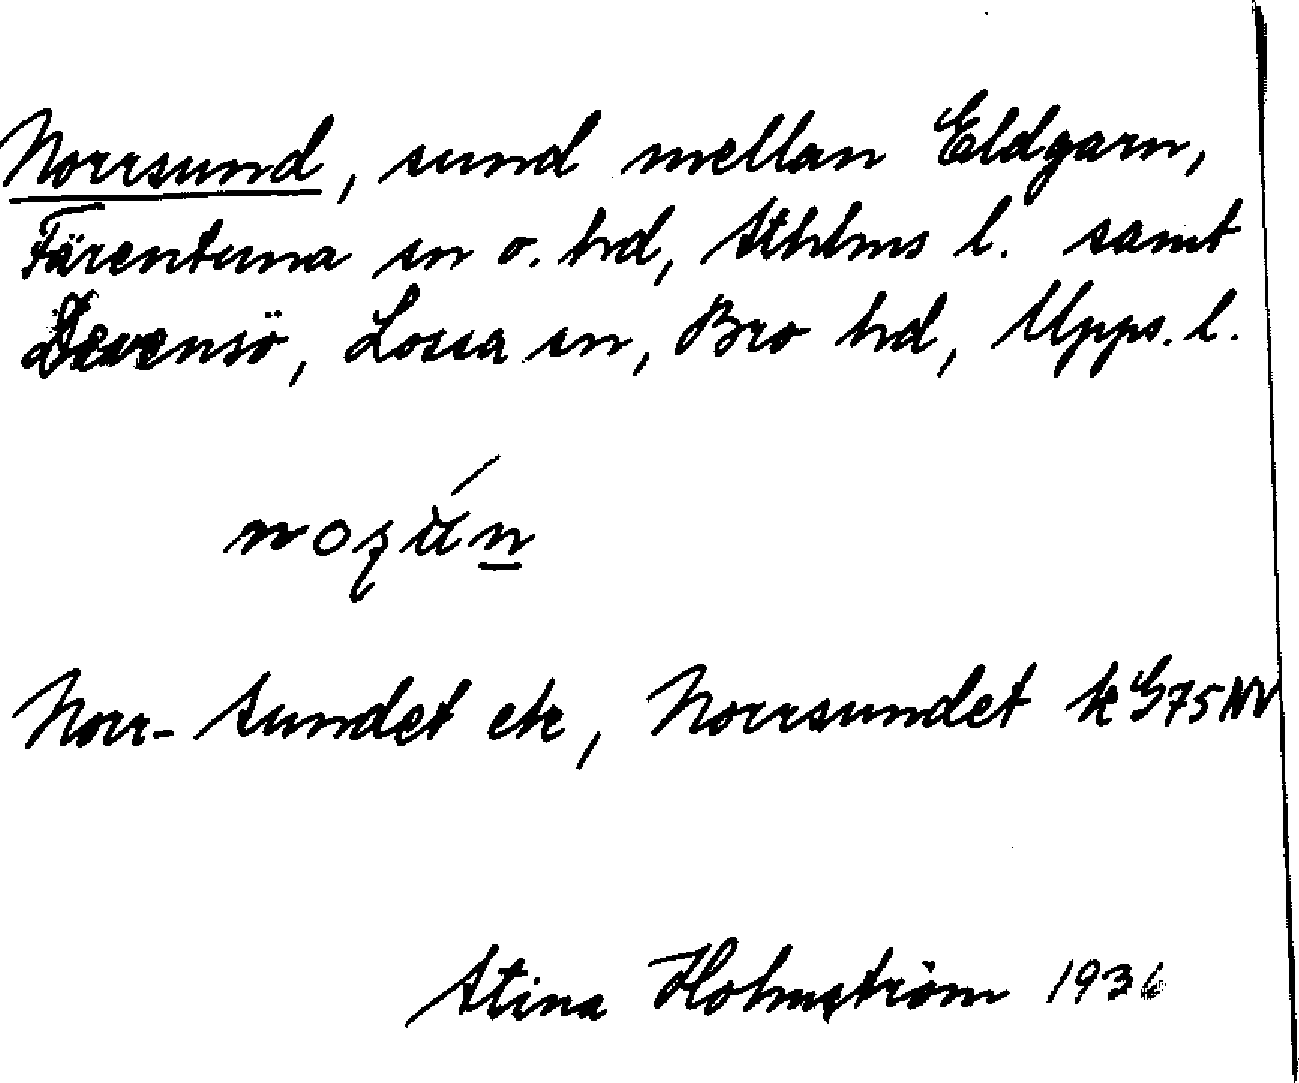 Norrsund, sund mellan Eldgarn,
Färentuna sn o. hd, Sthlms l. samt
Devensö, Lossa sn, Bro hd, Upps. l.
Norr-Sundet ek, Norrsundet k G75NV
Stina Holmström 1936